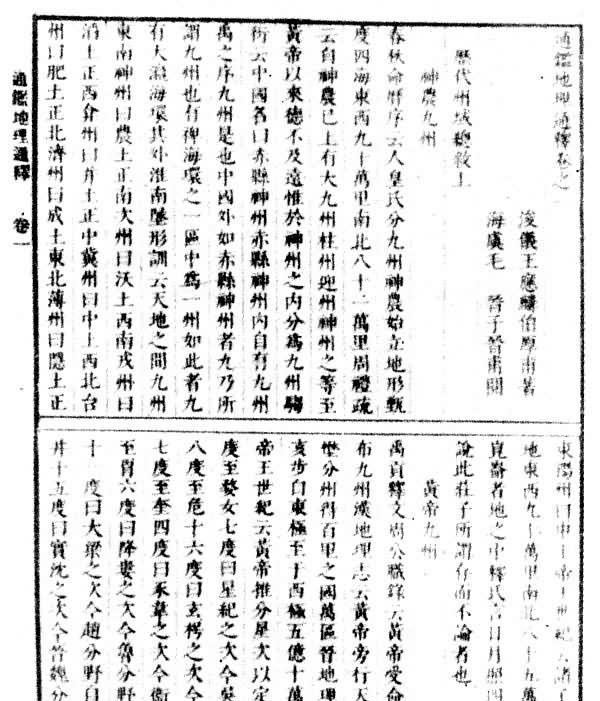 通鑑地理通釋卷之
浚儀王應麟伯厚甫著
海虞毛 晉子晉甫閱
歷代州域總敘上
神農九州
春秋命曆序云人皇氏分九州神農始立地形甄
度四海東西九十萬里南北八十二萬里周禮疏
云自神農已上有大九州柱州迎州神州之等至
黃帝以來德不及遠惟於神州之內分爲九州騶
衍云中國名曰赤縣神州赤縣神州內自有九州
禹之序九州是也中國外如赤縣神州者九乃所
謂九州也有裨海環之一區中爲一州如此者九
有大瀛海環其外淮南墬形訓云天地之間九州
東南神州曰農土正南次州曰沃土西南戎州曰
滔土正西弇州曰幷土正中冀州曰中土西北台
州曰肥土正北濟州曰成土東北薄州曰隱土正
通鑑地理通釋 卷一
東陽州曰申土帝王世紀云諸子
地東西九十萬里南北八十五萬
崑崙者地之中釋氏言日月照四
說此莊子所謂存而不論者也
黃帝九州
禹貢釋文周公職錄云黃帝受命
布九州漢地理志云黃帝旁行天
壄分州得百里之國萬區晉地理
亥步自東極至于西極五億十萬
帝王世紀云黃帝推分星次以定
度至婺女七度曰星紀之次今吳
八度至危十六度曰玄枵之次今
七度至奎四度曰豕韋之次今衛
至胃六度曰降婁之次今魯分野
十一度曰大梁之次今趙分野自
井十五度曰實沈之次今晉魏分